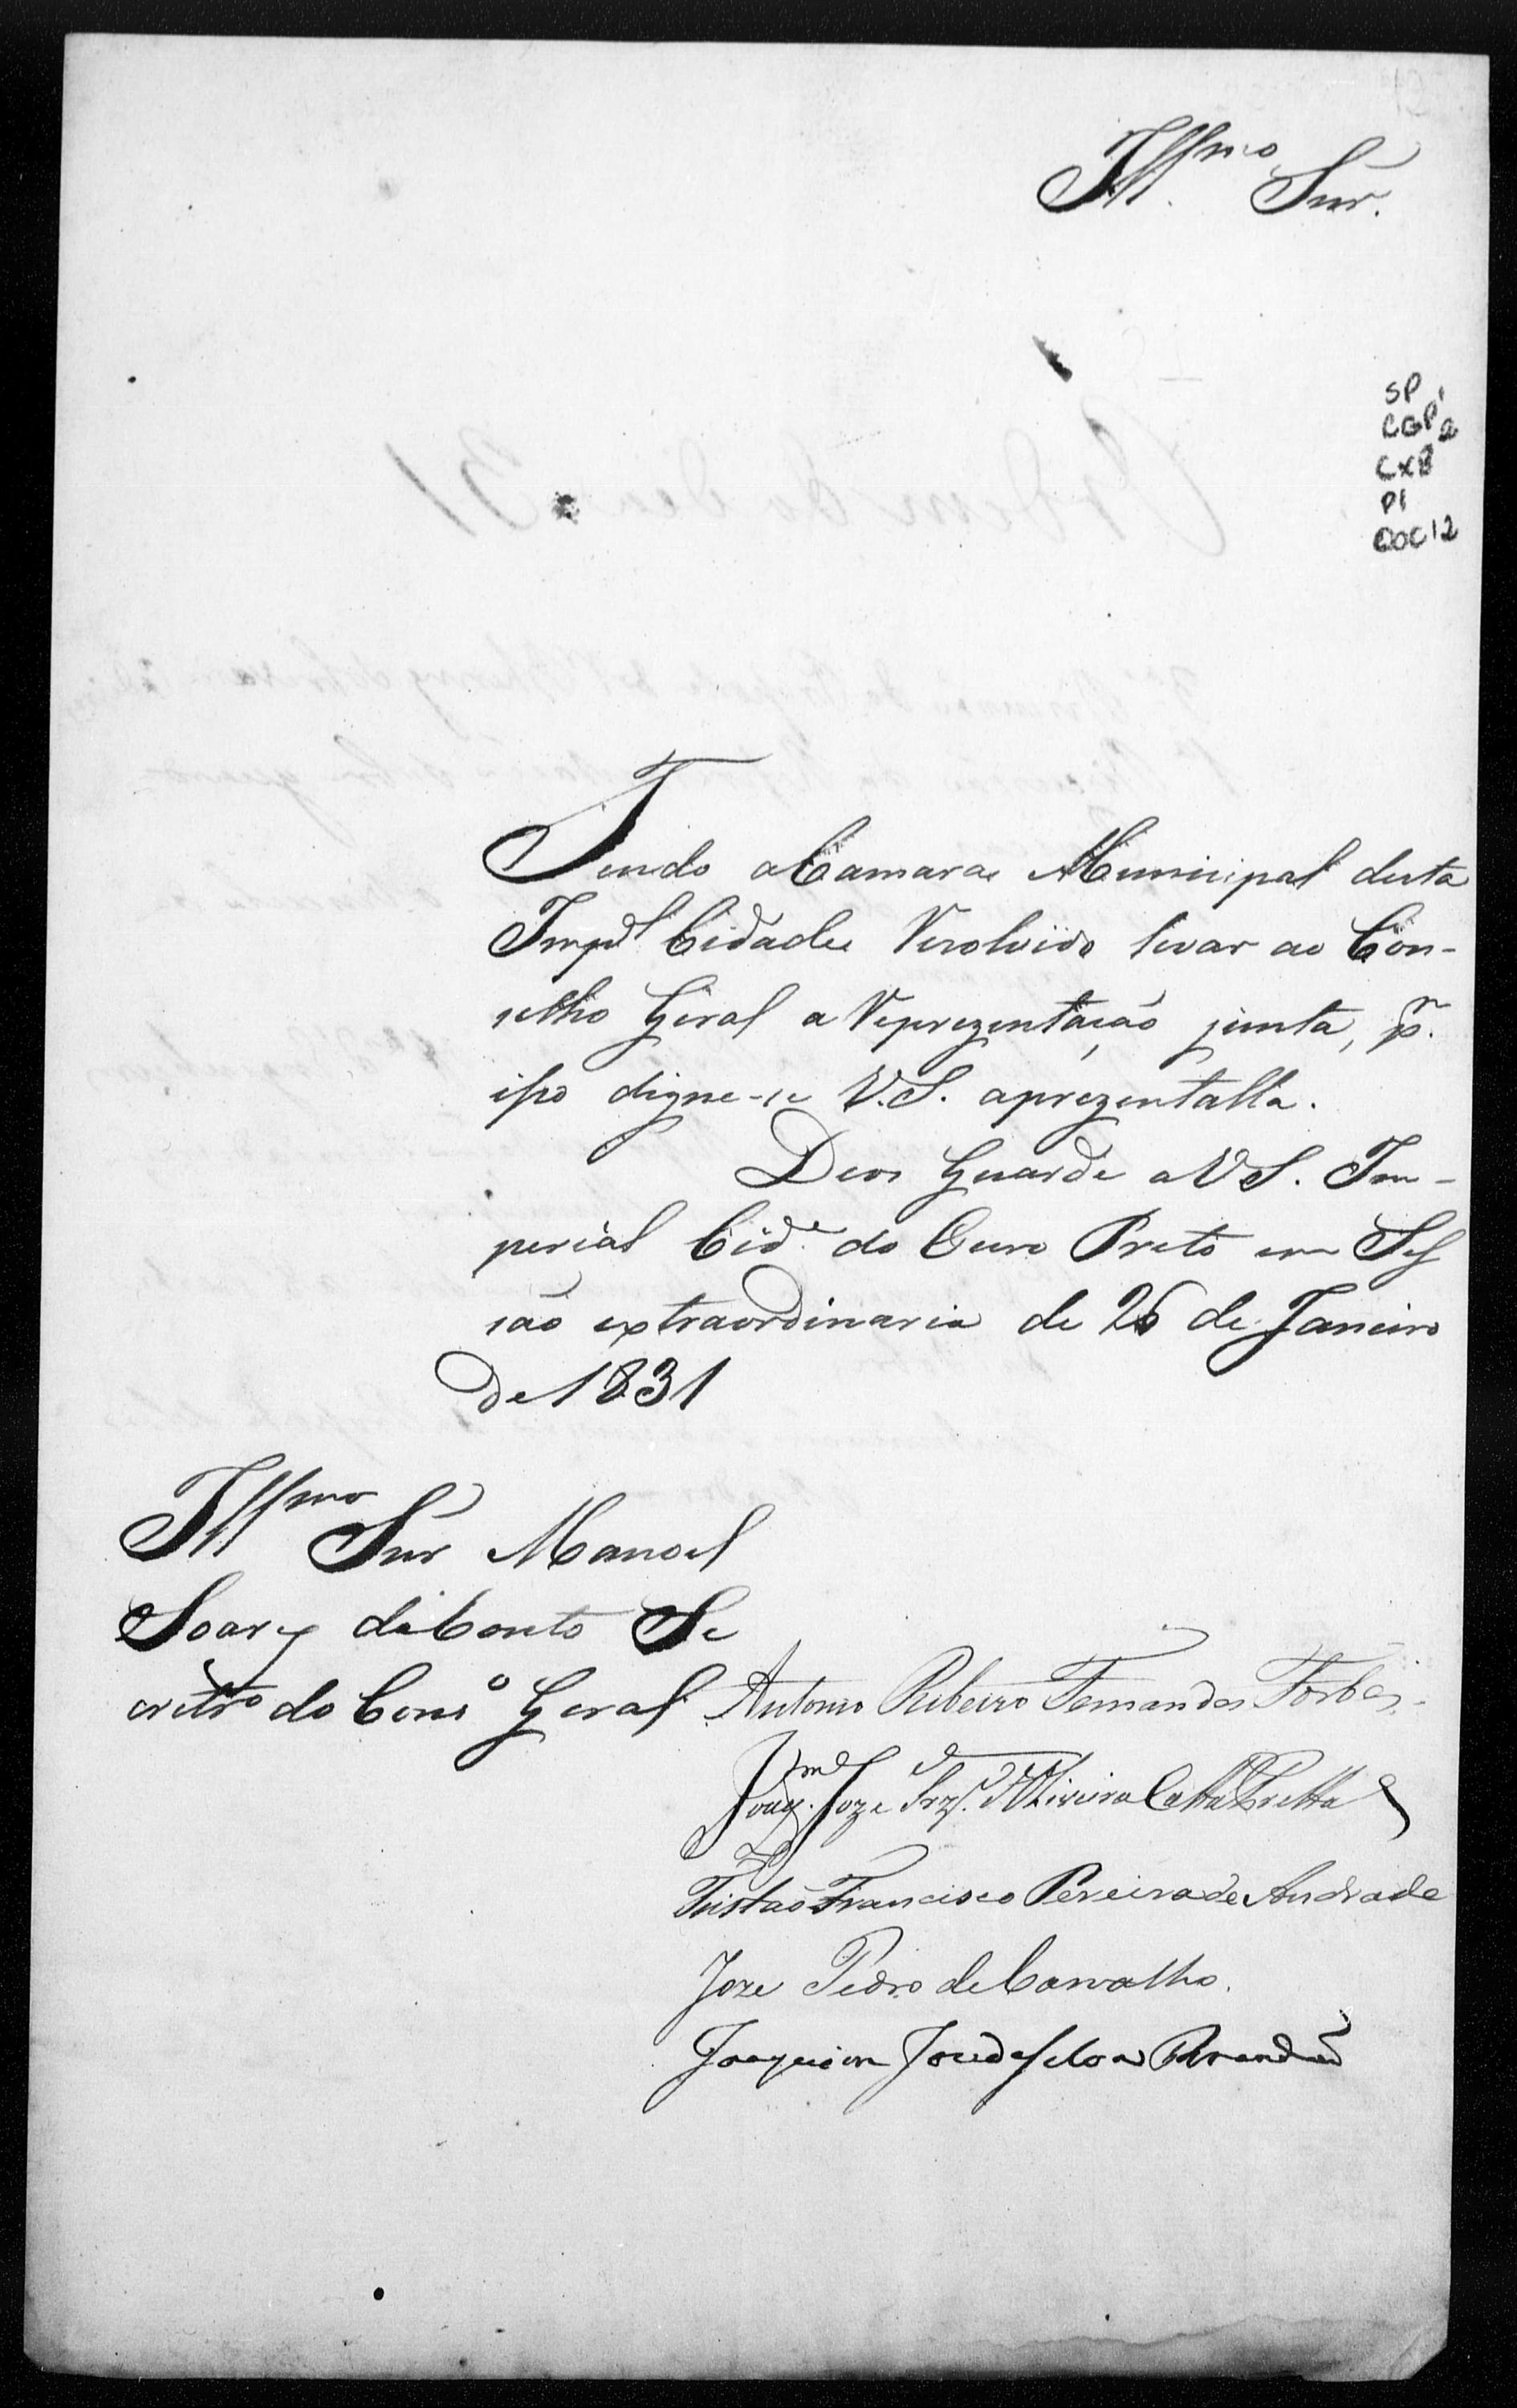 Ill.mo Snr.
SP
CGP1
CX8
P1
DOC12
Tendo a Camara Municipal desta
Imp.al Cidade Rezolvido levar ao Con-
selho Geral a Reprezentação junta, p.r
isso digne-se V.S. aprezentalla.
Deos Guarde a V S. Im-
perial Cid.e do Ouro Preto em Ses
são extraordinaria de 26 de Janeiro
de 1831
Ill.mo Snr Manoel
Soares do Couto Se
cretr.o do Cons.o Geral
Antonio Ribeiro Fernandes Forbes
Joaq.m Joze Frz. d'Oliveira Catta Pretta
Tristão Francisco Pereira de Andrade
Joze Pedro de Carvalho.
Joaquim Jose da Silva Brandão